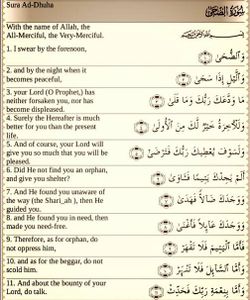 Sura Ad-Dhuha
سُورَةُ الضُّحَىٰ
With the name of Allah, the
All-Merciful, the Very-Merciful.
بِسْمِ اللَّهِ الرَّحْمَٰنِ الرَّحِيمِ
1. I swear by the forenoon,
وَالضُّحَىٰ
2. and by the night when it
becomes peaceful,
وَاللَّيْلِ إِذَا سَجَىٰ
3. your Lord (O Prophet,) has
neither forsaken you, nor has
become displeased.
مَا وَدَّعَكَ رَبُّكَ وَمَا قَلَىٰ
4. Surely the Hereafter is much
better for you than the present
life.
وَلَلْآخِرَةُ خَيْرٌ لَّكَ مِنَ الْأُولَىٰ
5. And of course, your Lord will
give you so much that you will be
pleased.
وَلَسَوْفَ يُعْطِيكَ رَبُّكَ فَتَرْضَىٰ
6. Did He not find you an orphan,
and give you shelter?
أَلَمْ يَجِدْكَ يَتِيمًا فَآوَىٰ
7. And He found you unaware of
the way (the Shari_ah ), then He
guided you.
وَوَجَدَكَ ضَالًّا فَهَدَىٰ
8. and He found you in need, then
made you need-free.
وَوَجَدَكَ عَائِلًا فَأَغْنَىٰ
9. Therefore, as for orphan, do
not oppress him,
فَأَمَّا الْيَتِيمَ فَلَا تَقْهَرْ
10. and as for the beggar, do not
scold him.
وَأَمَّا السَّائِلَ فَلَا تَنْهَرْ
11. And about the bounty of your
Lord, do talk.
وَأَمَّا بِنِعْمَةِ رَبِّكَ فَحَدِّثْ